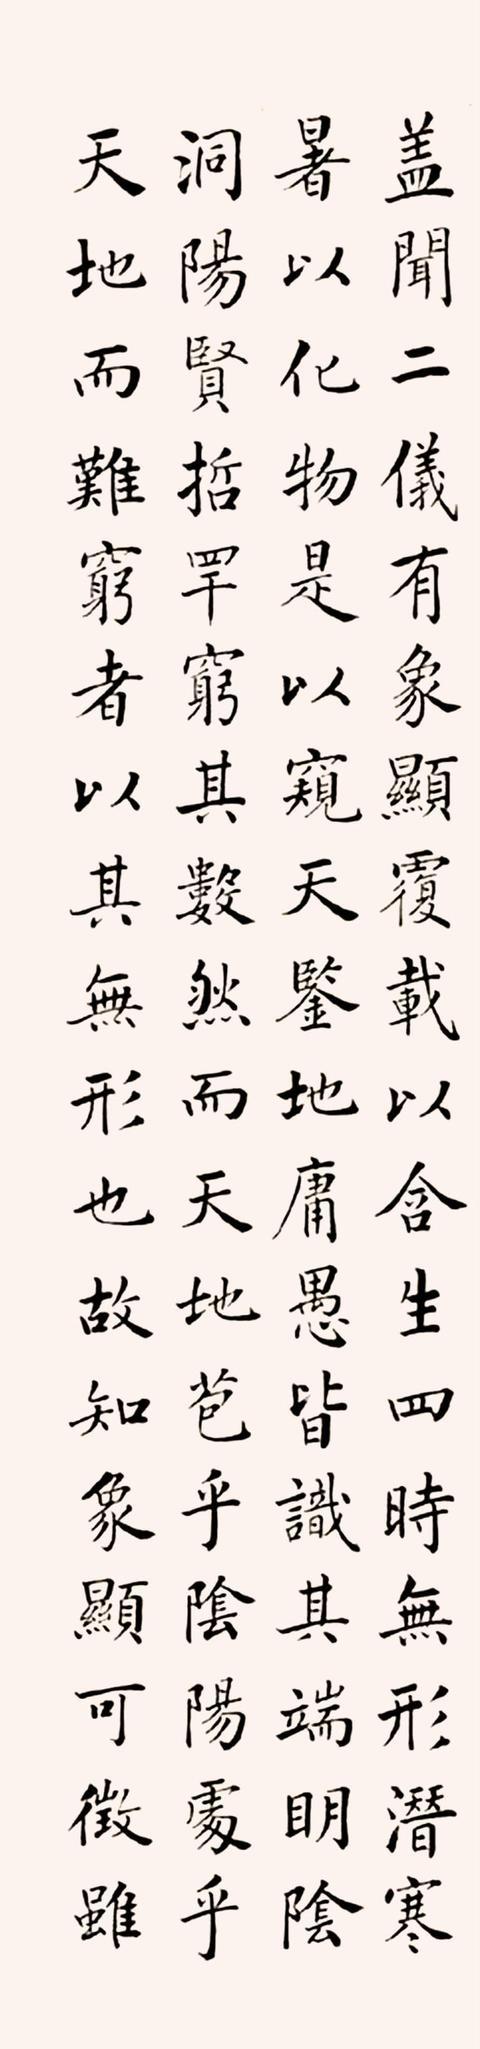 盖聞二儀有象顯覆載以含生四時無形潛寒
暑以化物是以窺天鑒地庸愚皆識其端明陰
洞陽賢哲罕窮其數然而天地苞乎陰陽處乎
天地而難窮者以其無形也故知象顯可徵雖